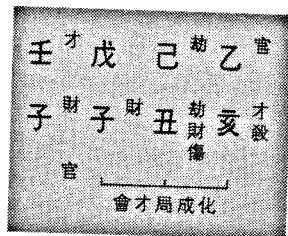 壬 才 戊 己 劫 乙 官
子 財 子 財 丑 劫財傷 亥 才殺
官
會才局成化